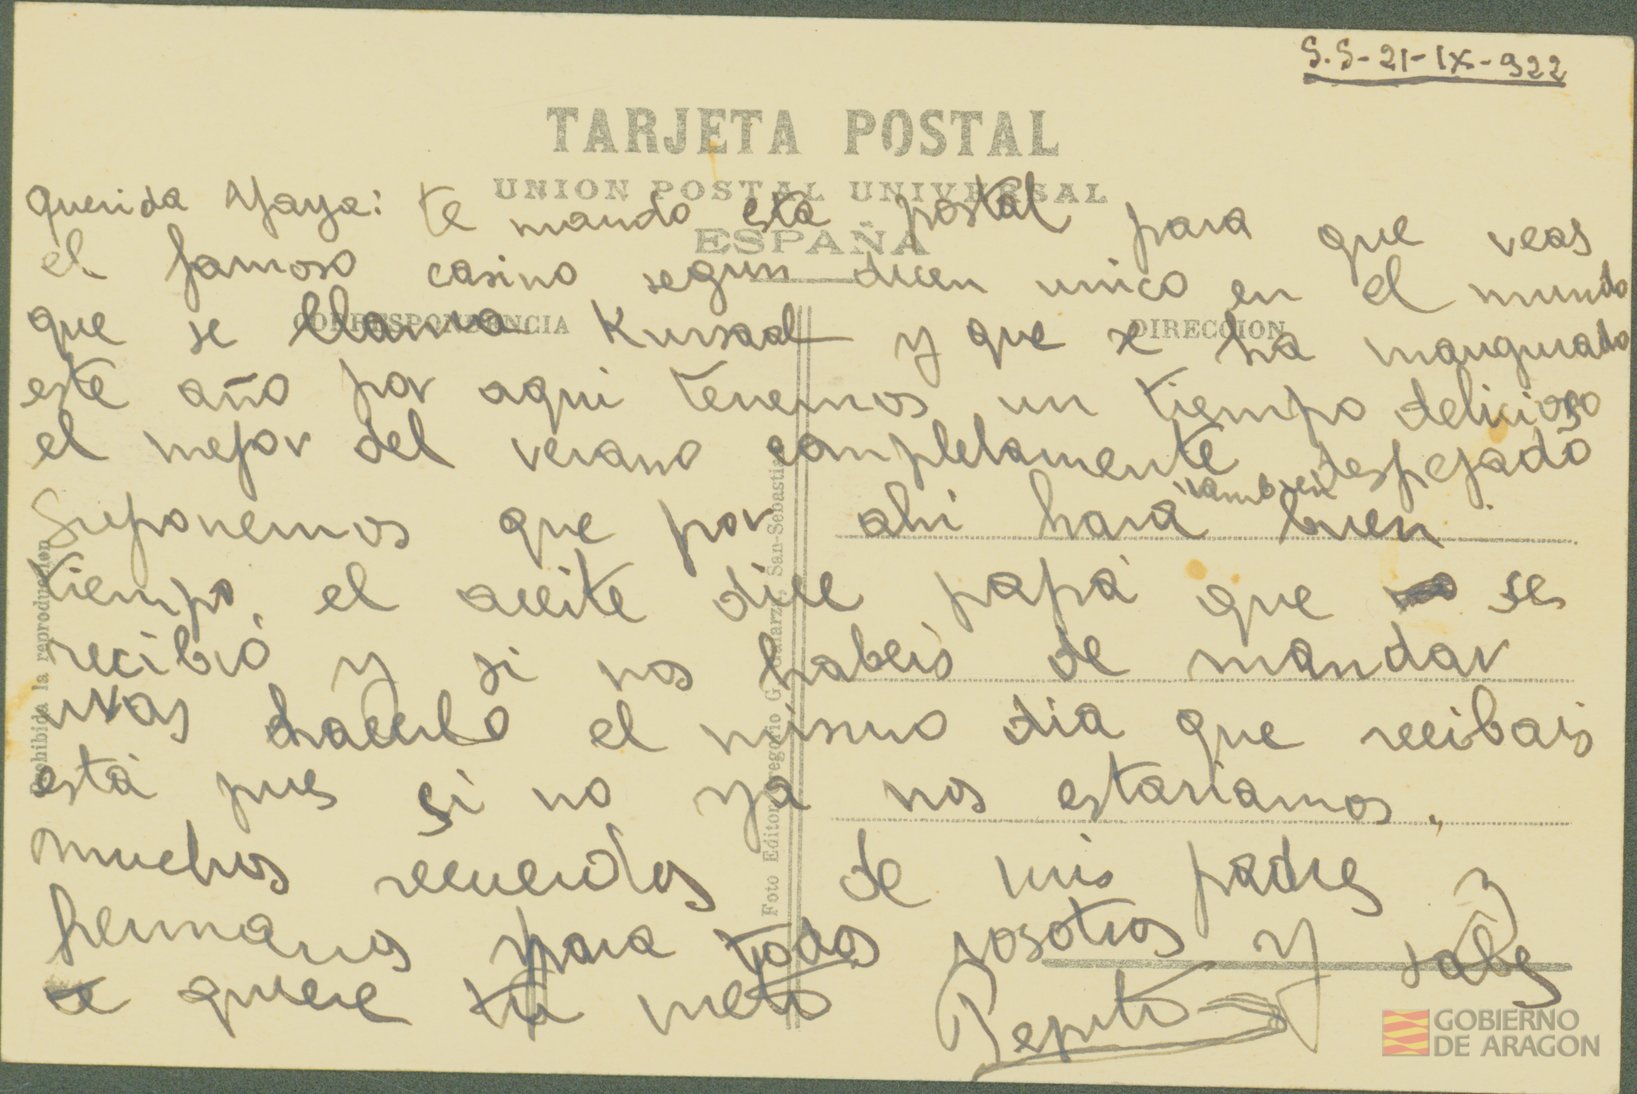 S.S-21-IX-922
TARJETA POSTAL
UNION POSTAL UNIVERSAL
ESPAÑA
CORRESPONDENCIA
DIRECCION
Querida Yaya: te mando esta postal para que veas
el famoso casino segun dicen unico en el mundo
que se llama Kursaal y que se ha inaugurado
este año por aqui tenemos un tiempo delicioso
el mejor del verano completamente despejado
Suponemos que por ahi hará tambien buen
tiempo, el aceite dice papá que se
recibió y si nos habeis de mandar
uvas hacerlo el mismo dia que recibais
está pues si no ya no estariamos.
muchos recuerdos de mis padres y
hermanos para todos vosotros y sabes
te quiere tu nieto Pepito
Prohibida la reproducción
Foto Editor Gregorio G. Galarza, San-Sebastia
GOBIERNO
DE ARAGON